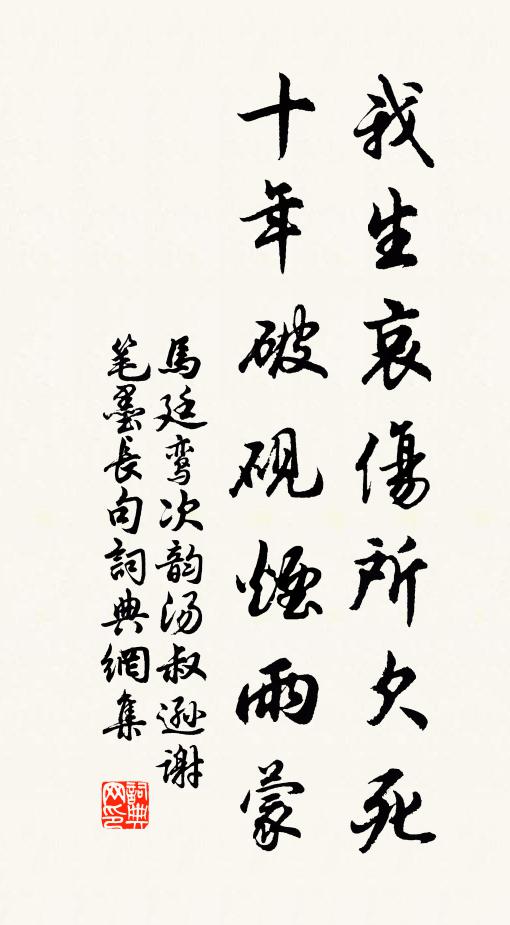 我生哀傷所欠死
十年破硯煙雨蒙
馬廷鸾次韵汤叔遜谢
笔墨長句詞典網集
詞典网印